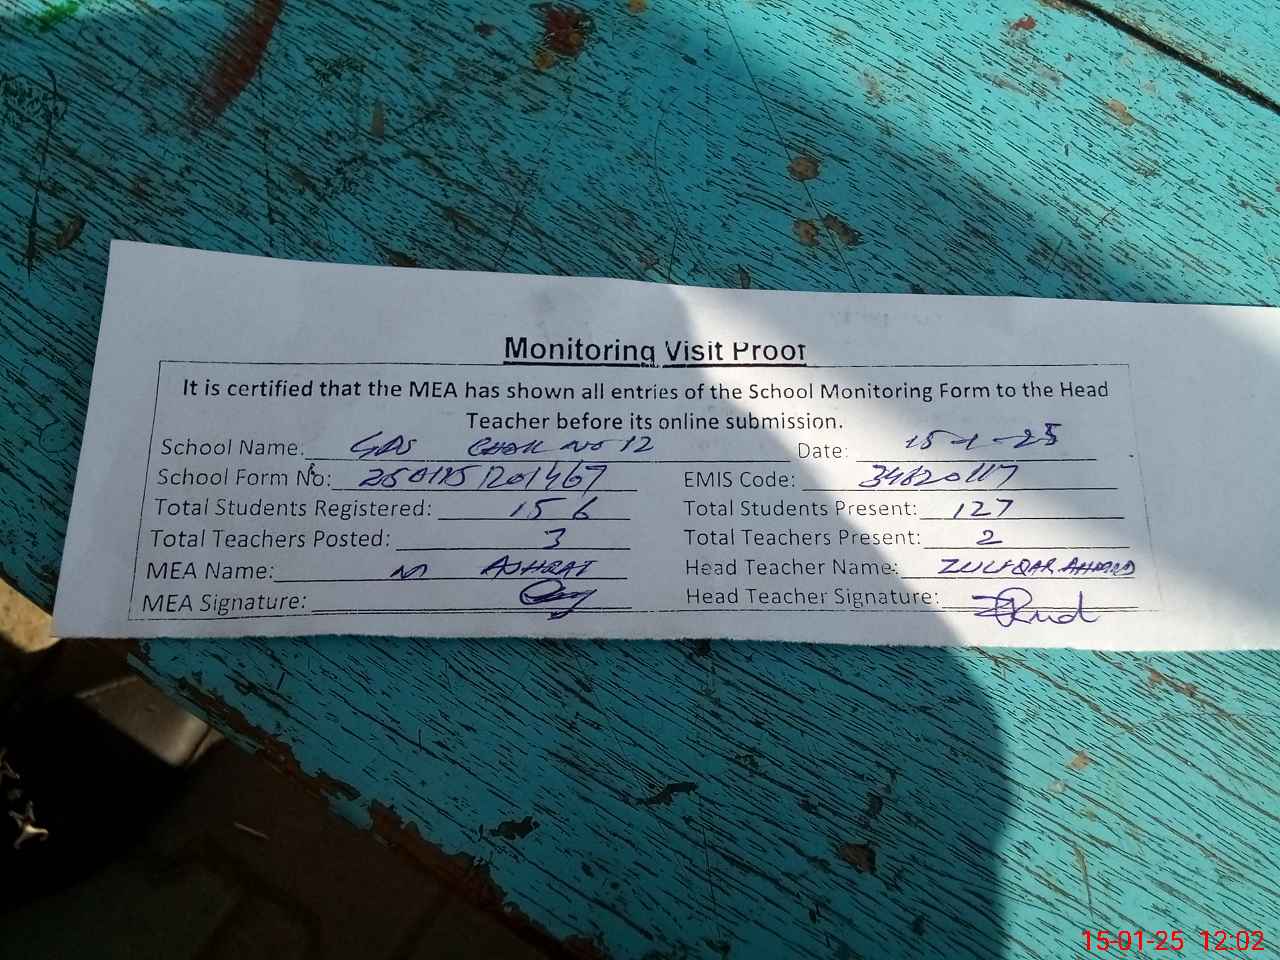 Monitoring Visit Proof
It is certified that the MEA has shown all entries of the School Monitoring Form to the Head
Teacher before its online submission.
School Name: GPS CHAK NO 12 Date: 15-1-25
School Form No: EMIS Code:
Total Students Registered: 156 Total Students Present: 127
Total Teachers Posted: 3 Total Teachers Present: 2
MEA Name: M ASHRAF Head Teacher Name: ZULFQAR AHMAD
MEA Signature: Head Teacher Signature:
15-01-25 12:02